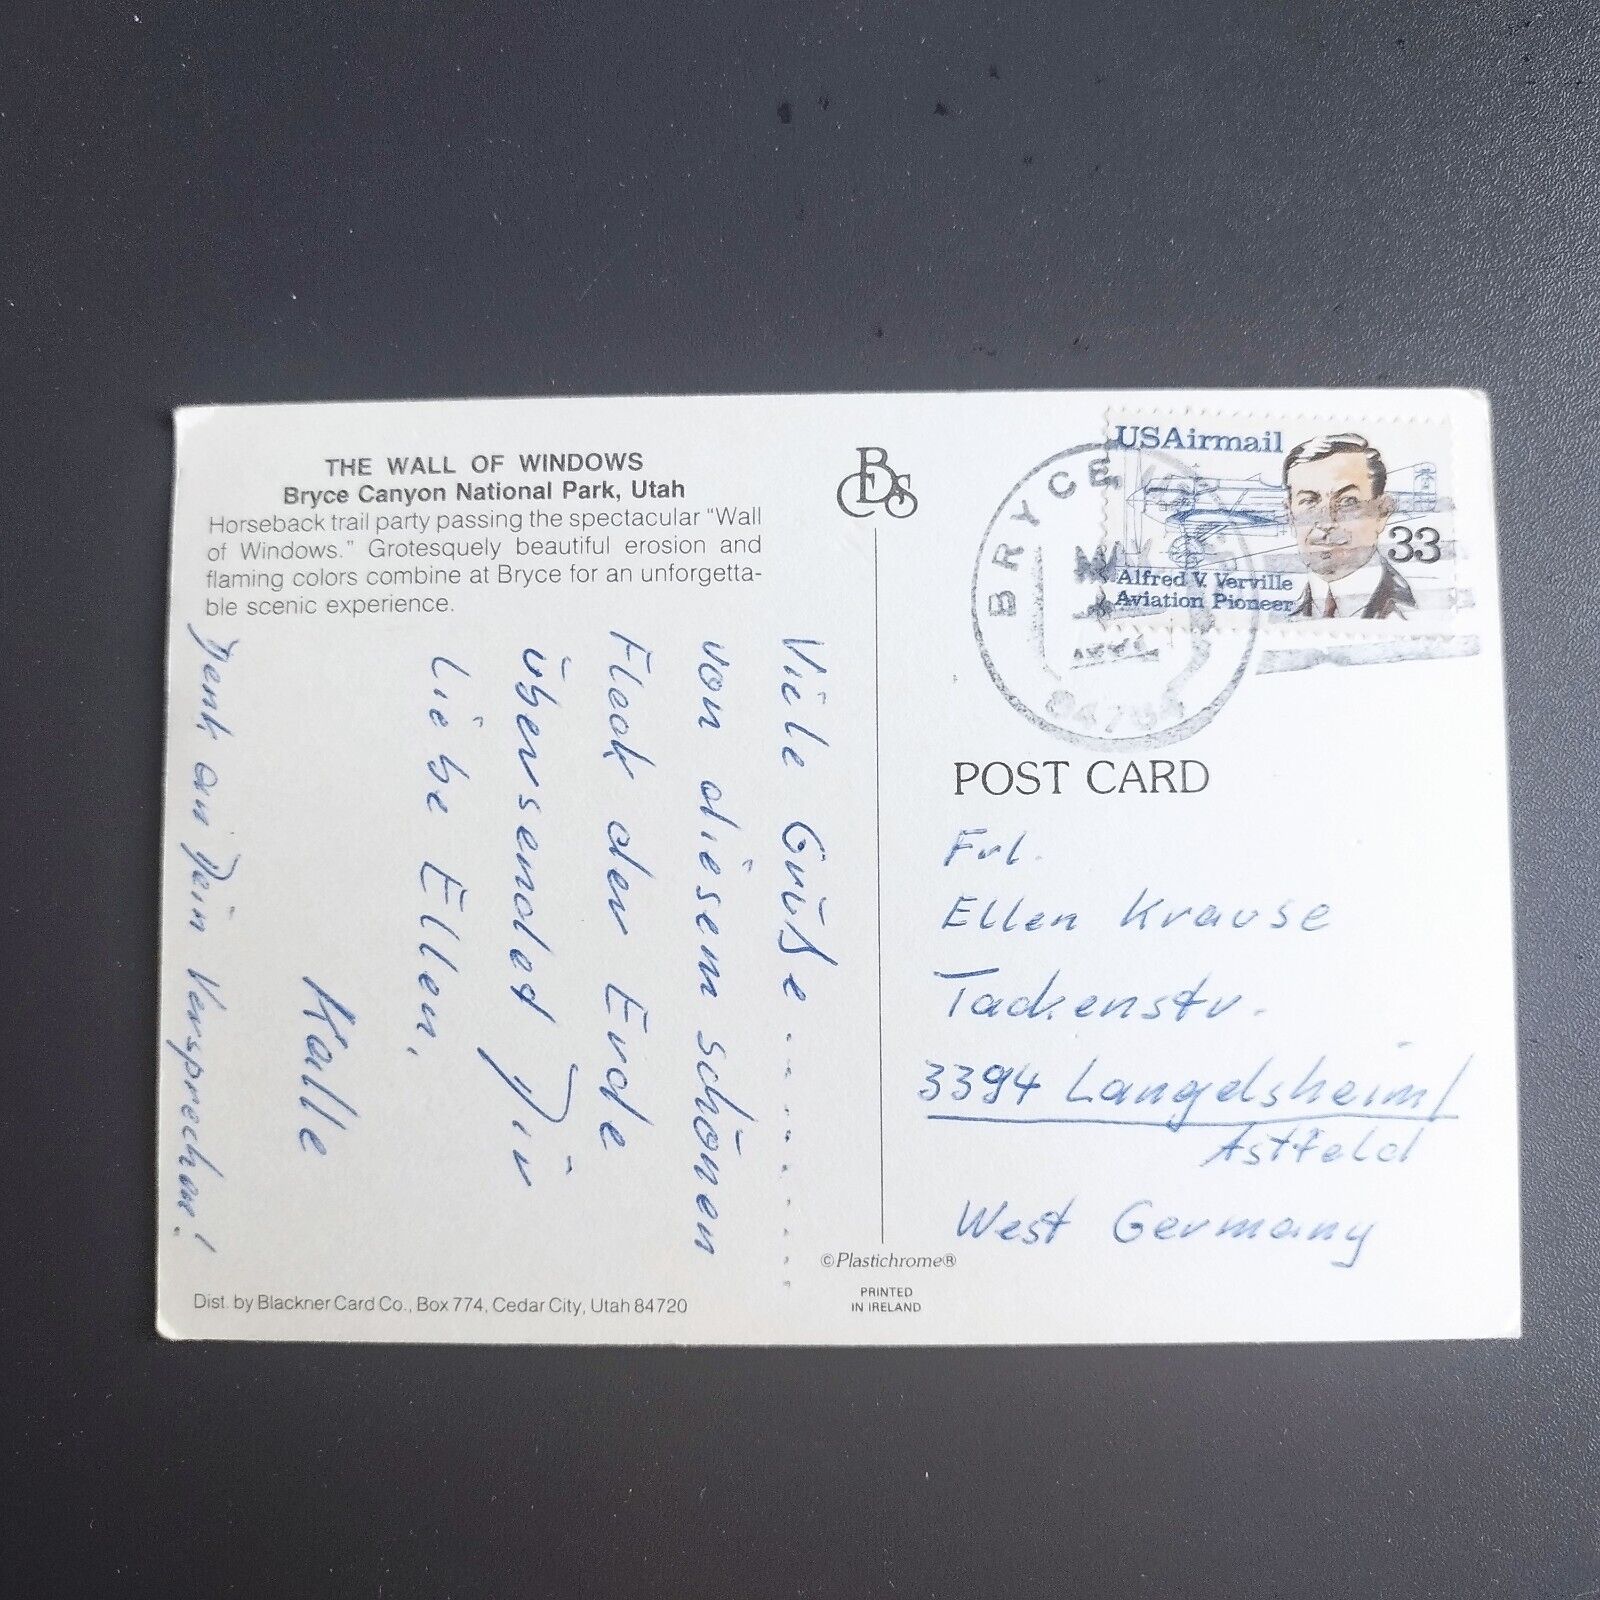 THE WALL OF WINDOWS
Bryce Canyon National Park, Utah
Horseback trail party passing the spectacular "Wall
of Windows." Grotesquely beautiful erosion and
flaming colors combine at Bryce for an unforgetta-
ble scenic experience.
Viele Grüße ........
von diesem schönen
Fleck der Erde
übersendet Dir
Liebe Ellen,
Kalle
Denk an Dein Versprechen!
Dist. by Blackner Card Co., Box 774, Cedar City, Utah 84720
©Plastichrome®
PRINTED
IN IRELAND
USAirmail
33
Alfred V. Verville
Aviation Pioneer
BRYCE
POST CARD
Frl.
Ellen Krause
Tackenstr.
3394 Langelsheim/
Astfeld
West Germany